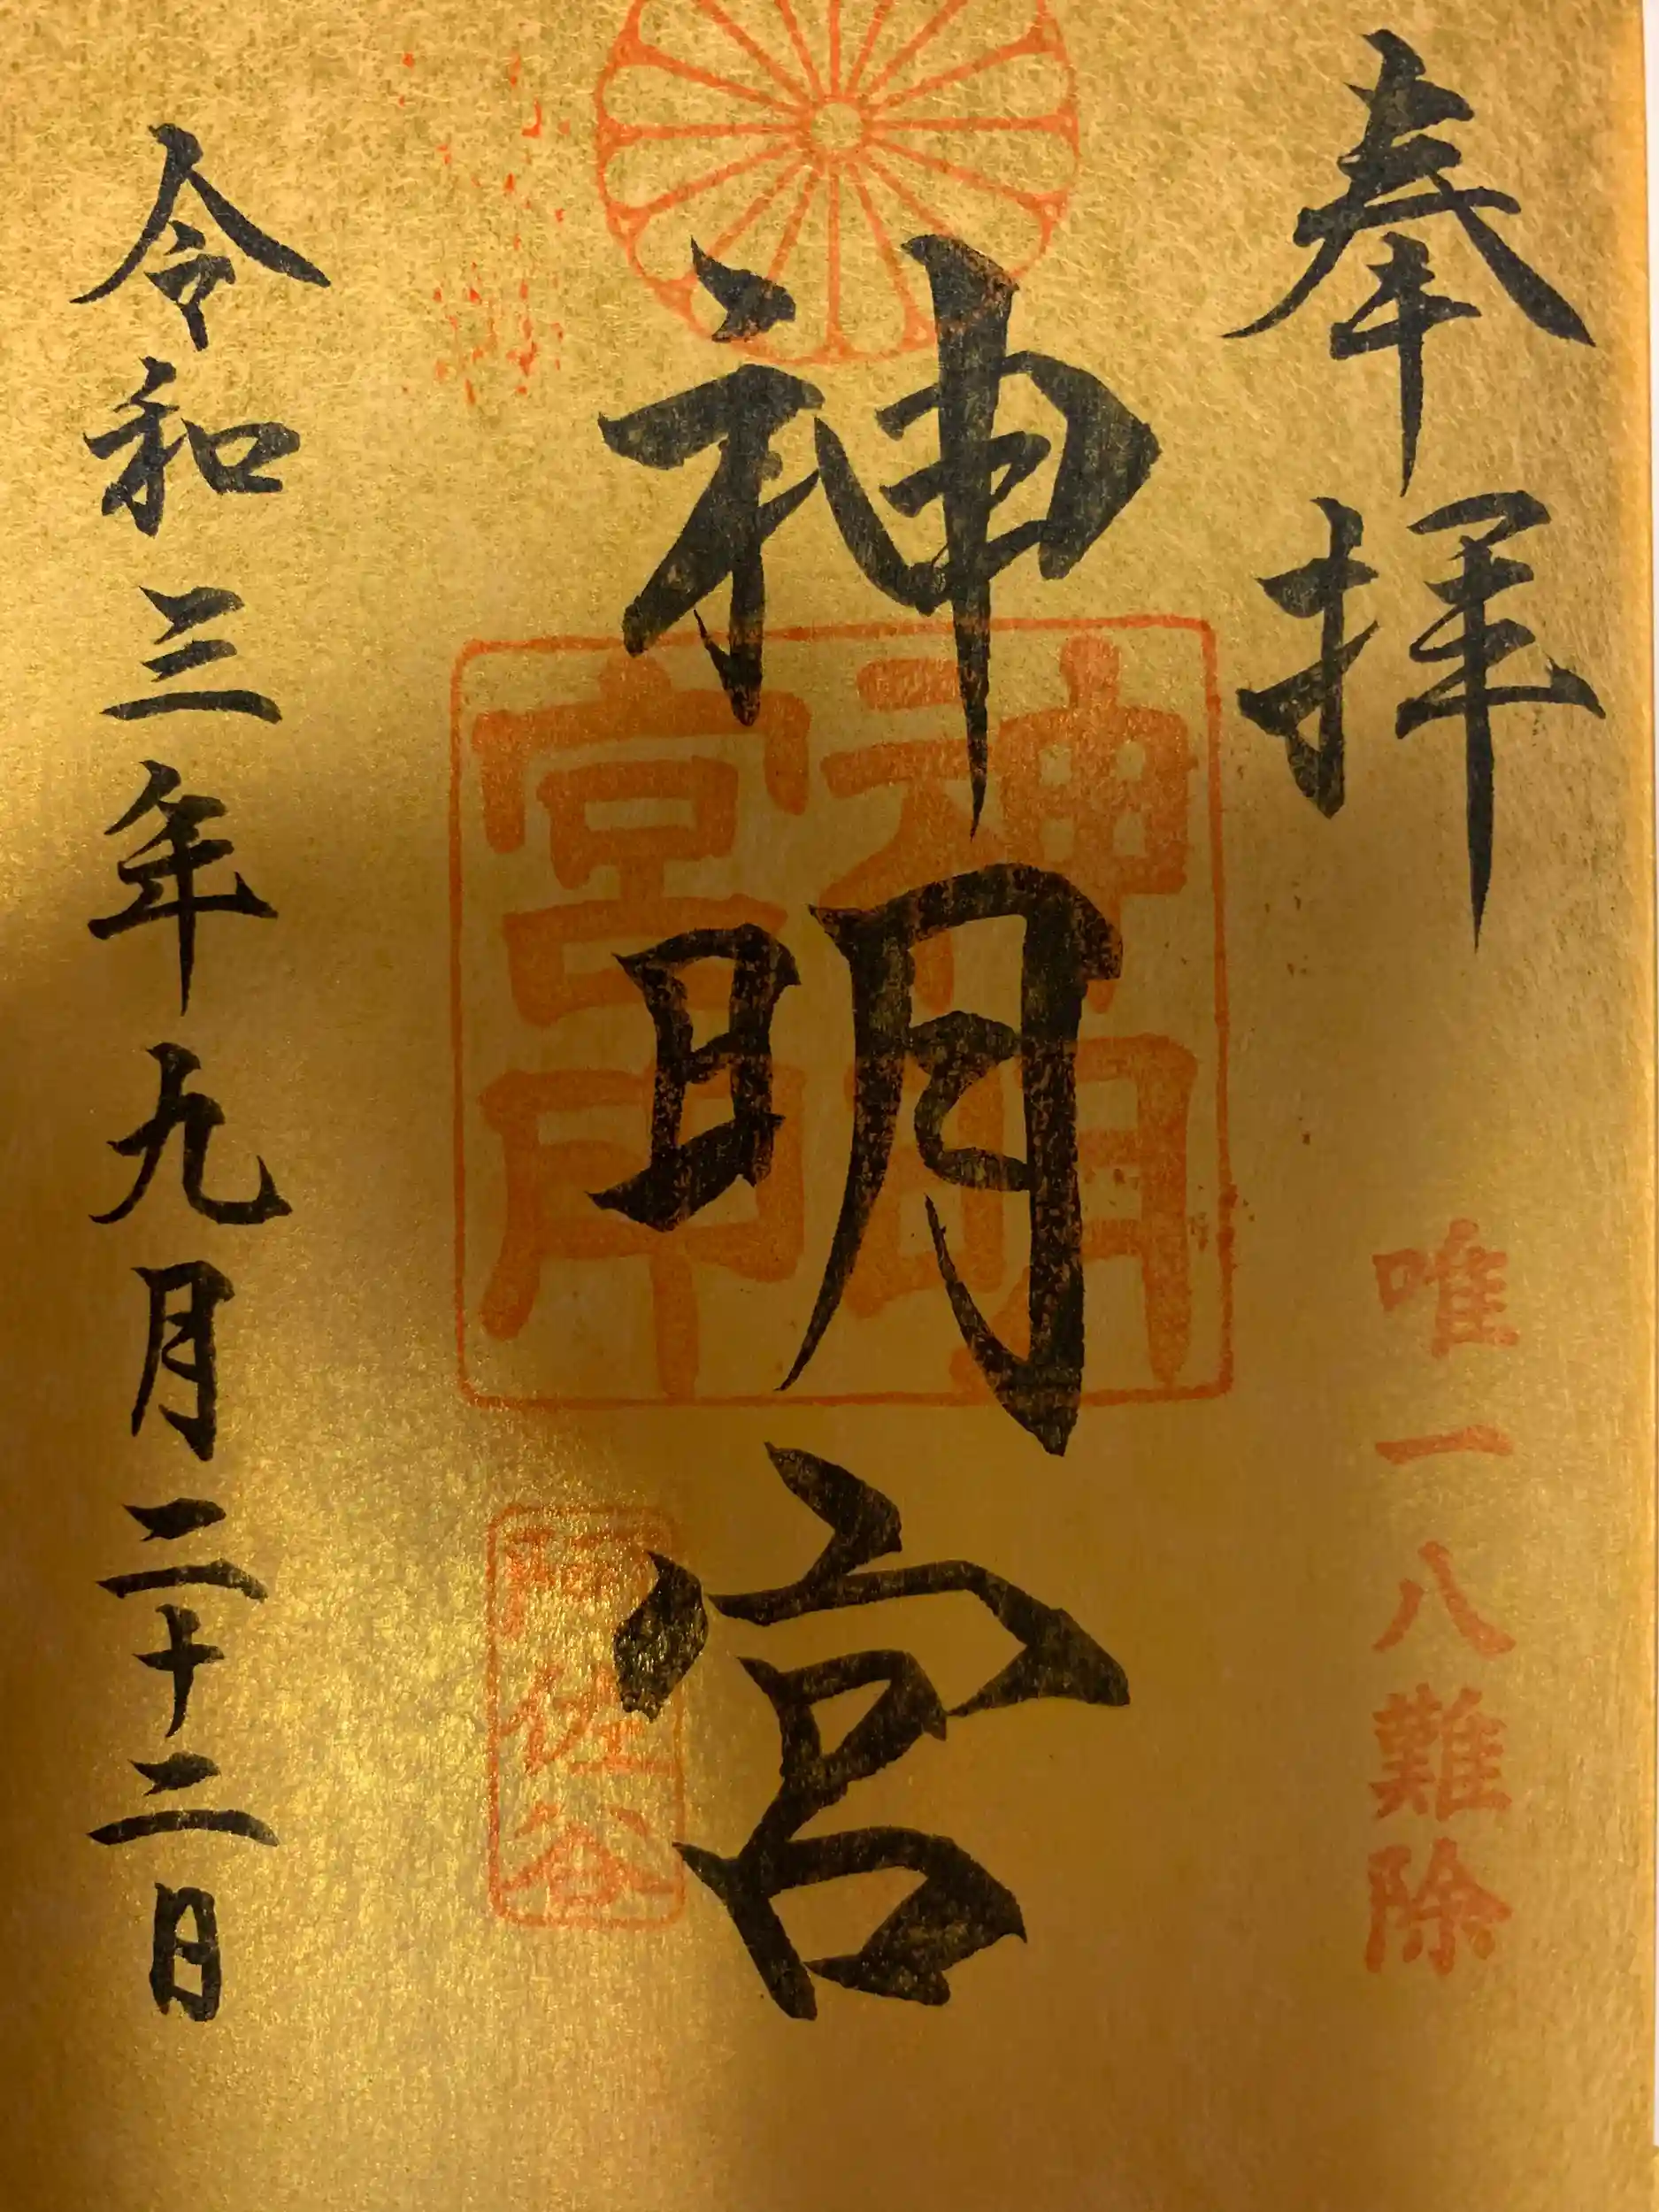 奉拝
唯一八難除
神明宮
神明
宮印
阿佐谷
令和三年九月二十二日